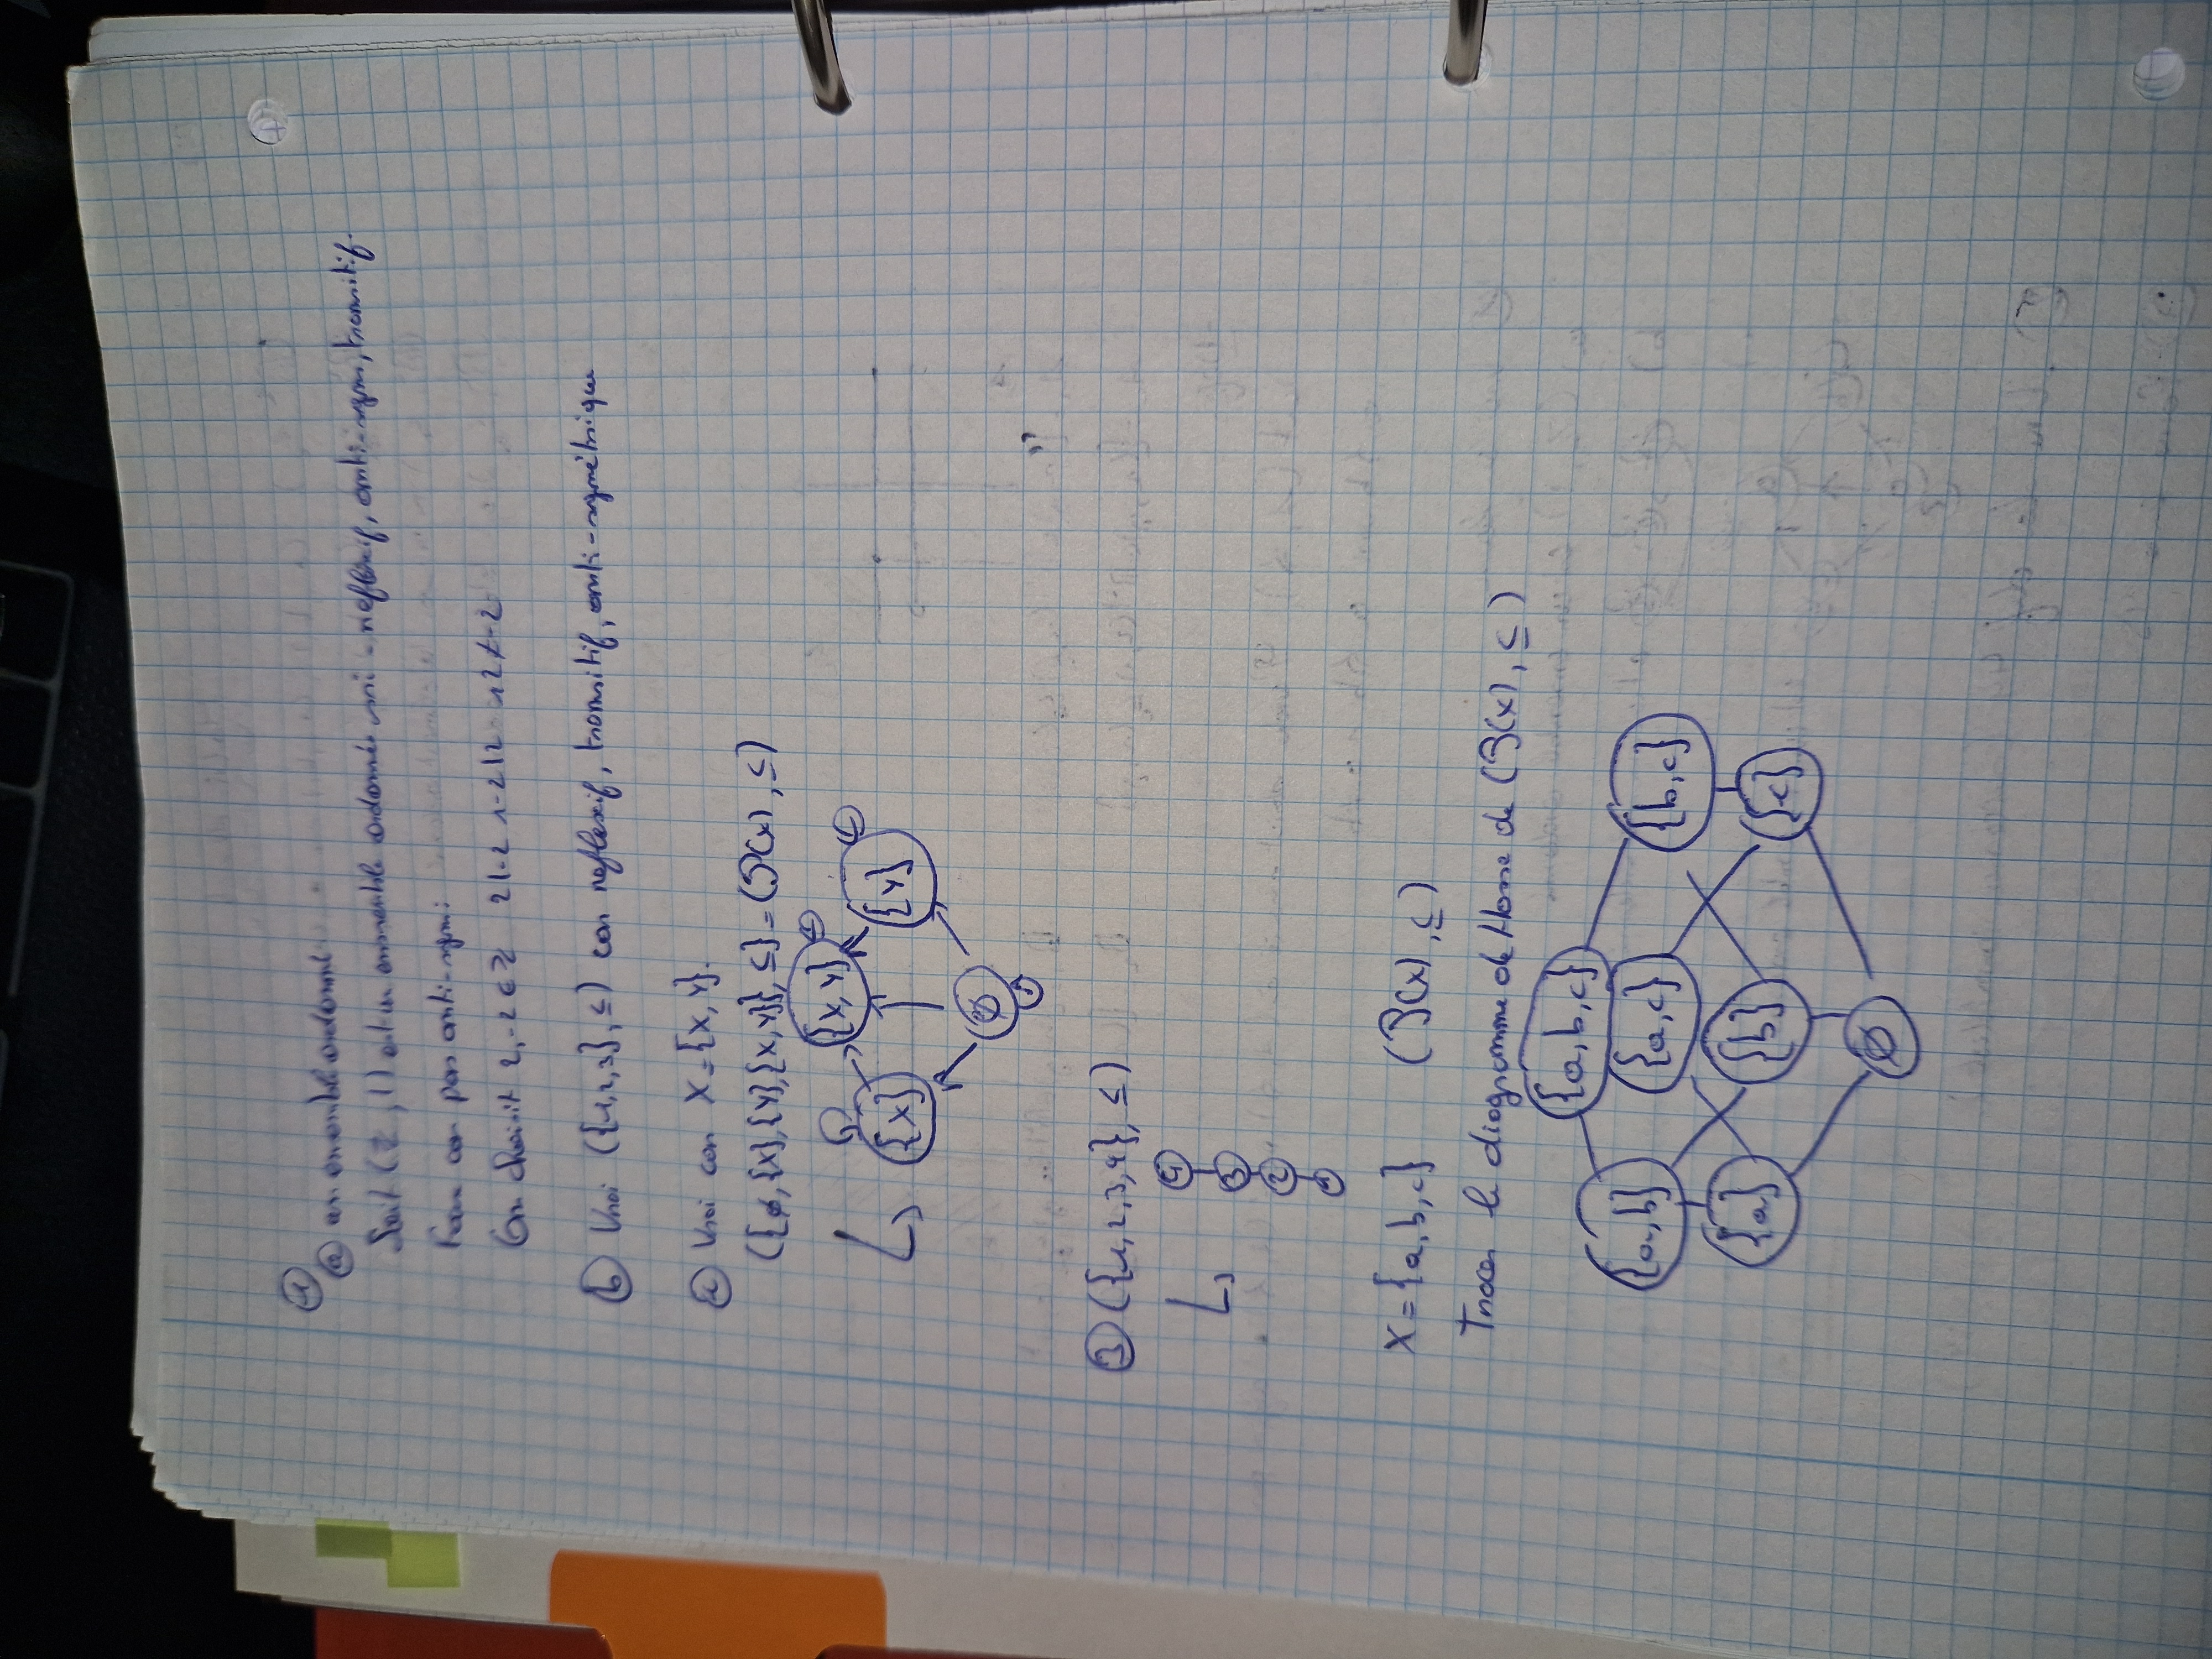 ①
ⓐ un ensemble ordonné
Soit (ℤ, |) est un ensemble ordonnée ssi - reflexif, anti-sym, transitif.
Faux car pas anti-sym:
On choisit 2, -2 ∈ ℤ 2|-2 ∧ -2|2 ∧ 2≠-2
ⓑ Vrai ({1,2,3}, ≤) car reflexif, transitif, anti-symétrique
Vrai car X={x, y}.
({∅,{x},{y},{x,y}}, ⊆} = (P(x), ⊆)
{x,y}
{x} {y}
∅
③ ({1,2,3,4}, ≤)
4
3
2
1
X={a,b,c} (P(x), ⊆)
Tracer le diagramme de Hasse de (P(x), ⊆)
{a,b,c}
{a,b} {a,c} {b,c}
{a} {b} {c}
∅